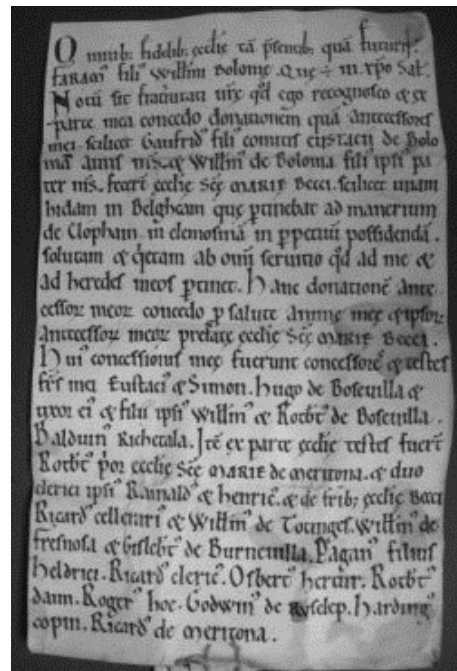 Omnib; fidelib; ecclie tā p̄sentib; quā futuris.
FARAM' fili' Willmi Bolonie. Que ÷ in xp̄o Sal't.
Notū sit fraternitati ur̄e qd ego recognosco & ex
parte mea concedo donationem quā antecessores
mei scilicet Gaufrid' fili' comitis eustacii de Bolo
nia auus ms. & Willm' de Bolonia fili' ipsi' pa
ter ms. fecer̄t ecclie Scē MARIE Becci. scilicet unam
hidam in Belgheam que ptinebat ad manerium
de Clopham in elemosinā in ppetuū possidendā.
solutam & q̄etam ab omī seruitio qd ad me &
ad heredes meos ptinet. Hanc donationē ante
cessoꝝ meoꝝ concedo p salute anime meę & ipsoꝝ
antecessoꝝ meoꝝ prefate ecclie Scē MARIE Becci.
Hui' concessionis meę fuerunt concessores & testes
fr̄s mei Eustaci' & Simon. Hugo de Boseuilla &
uxor ei' & filii ipsi' Willm' & Rotbt' de Boseuilla.
Balduin' Richetala. Itē ex parte ecclie testes fuer̄t
Rotbt' p̄or ecclie Scē MARIE de meritona. & duo
clerici ipsi' Rainald' & henric'. & de frib; ecclie Becci
Ricard' cellerari' & Willm' de Tocinges. Willm' de
fresnosa & Gislebt' de Burneuilla. Pagan' filius
heldrici. Ricard' cleric'. Osbert' Rotbt'
daun. Roger' hoc. Godwin' de Harding'
copin. Ricard' de meritona.